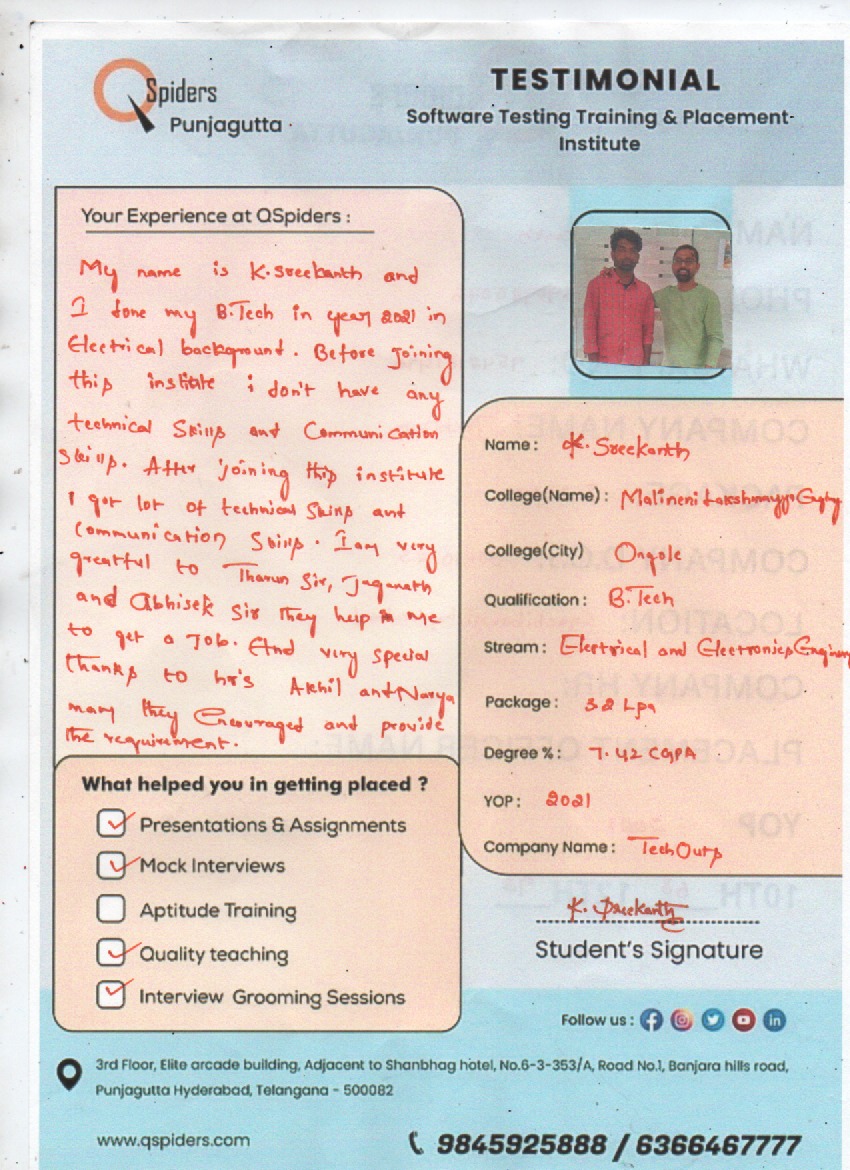 QSpiders
Punjagutta
TESTIMONIAL
Software Testing Training & Placement-
Institute
Your Experience at QSpiders :
My name is K.Sreekanth and
I done my B.Tech in year 2021 in
Electrical background. Before joining
this institute i don't have any
technical Skills and Communication
Skills. After joining this institute
I got lot of technical Skills and
Communication Skills. I am very
greatful to Tharun Sir, Jaganath
and Abhisek Sir they help in me
to get a Job. And very special
thanks to hr's Akhil and Navya
mam they Encouraged and provide
the requirement.
What helped you in getting placed ?
Presentations & Assignments
Mock Interviews
Aptitude Training
Quality teaching
Interview Grooming Sessions
Name : K. Sreekanth
College(Name) : Malineni
College(City) Ongole
Qualification : B.Tech
Stream : Electrical and Electronics
Package : 3.2 Lpa
Degree % : 7.42 CGPA
YOP : 2021
Company Name : TechOurs
K. Sreekanth
Student's Signature
Follow us :
3rd Floor, Elite arcade building, Adjacent to Shanbhag hotel, No.6-3-353/A, Road No.1, Banjara hills road,
Punjagutta Hyderabad, Telangana - 500082
www.qspiders.com
9845925888 / 6366467777